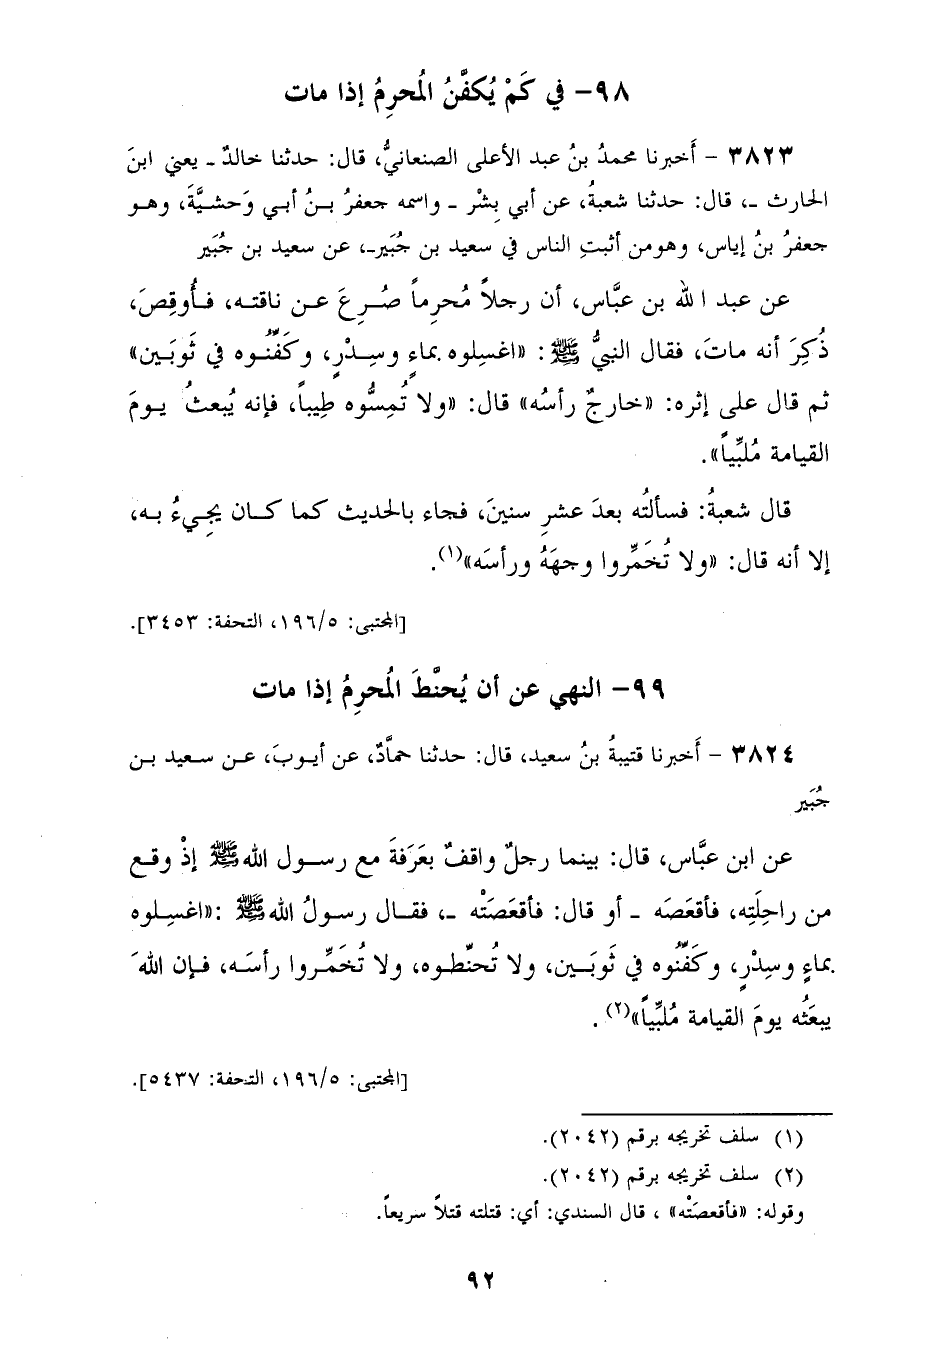 ٩٨- في كَمْ يُكفَّنُ المُحرِمُ إذا مات
٣٨٢٣ - أَخبرنا محمدُ بنُ عبد الأعلى الصنعانيُّ، قال: حدثنا خالدٌ ـ يعني ابنَ
الحارث ـ، قال: حدثنا شعبةُ، عن أبي بِشْر ـ واسمه جعفرُ بـنُ أبي وَحشيَّةَ، وهـو
جعفرُ بنُ إياس، وهومن أثبتِ الناس في سعيد بن جُبَير ـ، عن سعيد بن جُبَير
عن عبد الله بن عبَّاس، أن رجلاً مُحرِماً صُـرِعَ عـن ناقتـه، فـأُوقِصَ،
ذُكِرَ أنه ماتَ، فقال النبيُّ ﷺ: «اغسِلوه بماءٍ وسِـدْرٍ، وكَفِّنُـوه في ثَوبَـين»
ثم قال على إثره: «خارجٌ رأسُه» قال: «ولا تُمِسُّوه طِيباً، فإنه يُبعثُ يـومَ
القيامة مُلبِّياً».
قال شعبةُ: فسألتُه بعدَ عشرِ سنينَ، فجاء بالحديث كما كـان يجِيءُ بـه،
إلا أنه قال: «ولا تُخَمِّروا وجهَهُ ورأسَه»(١).
[المجتبى: ١٩٦/٥، التحفة: ٣٤٥٣].
٩٩- النهي عن أن يُحنَّطَ المُحرِمُ إذا مات
٣٨٢٤ - أَخبرنا قتيبةُ بنُ سعيد، قال: حدثنا حمَّادٌ، عن أيـوبَ، عـن سـعيد بـن
جُبَير
عن ابن عبَّاس، قال: بينما رجلٌ واقفٌ بعَرَفةَ مع رسـول الله ﷺ إذْ وقـع
من راحِلَتِه، فأقعَصَه ـ أو قال: فأقعَصَتْه ـ، فقـال رسـولُ الله ﷺ :«اغسِـلوه
بماءٍ وسِدْرٍ، وكَفِّنُوه في ثَوبَـين، ولا تُحنِّطـوه، ولا تُخَمِّـروا رأسَـه، فـإن اللهَ
يبعَثُه يومَ القيامة مُلبِّياً»(٢) .
[المجتبى: ١٩٦/٥، التحفة: ٥٤٣٧].
(١) سلف تخريجه برقم (٢٠٤٢).
(٢) سلف تخريجه برقم (٢٠٤٢).
وقوله: «فأقعصَتْه» ، قال السندي: أي: قتلته قتلاً سريعاً.
٩٢